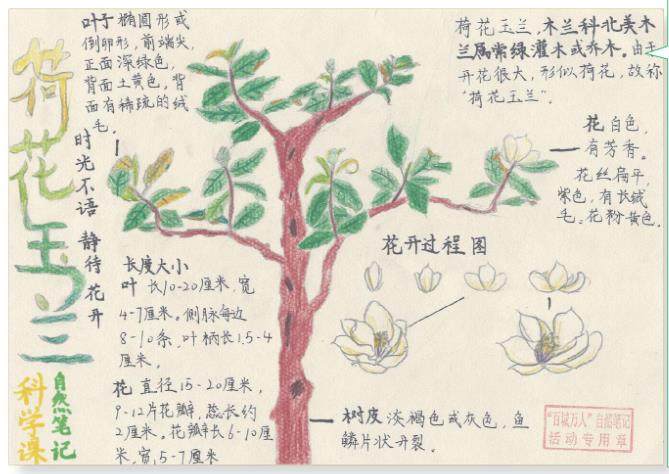 荷花玉兰
科学课
自然笔记
叶子 椭圆形或
倒卵形，前端尖，
正面深绿色，
背面土黄色，背
面有稀疏的绒
毛。
时光不语
静待花开
荷花玉兰，木兰科北美木
兰属常绿灌木或乔木。由于
开花很大，形似荷花，故称
“荷花玉兰”。
花 白色，
有芳香。
花丝扁平，
紫色，有长绒
毛。花粉黄色。
花开过程图
长度大小
叶 长10-20厘米，宽
4-7厘米。侧脉每边
8-10条，叶柄长1.5-4
厘米。
花 直径15-20厘米，
9-12片花瓣，蕊长约
2厘米。花瓣长6-10厘
米，宽5-7厘米
树皮 淡褐色或灰色，鱼
鳞片状开裂。
“百城万人”自然笔记
活动专用章